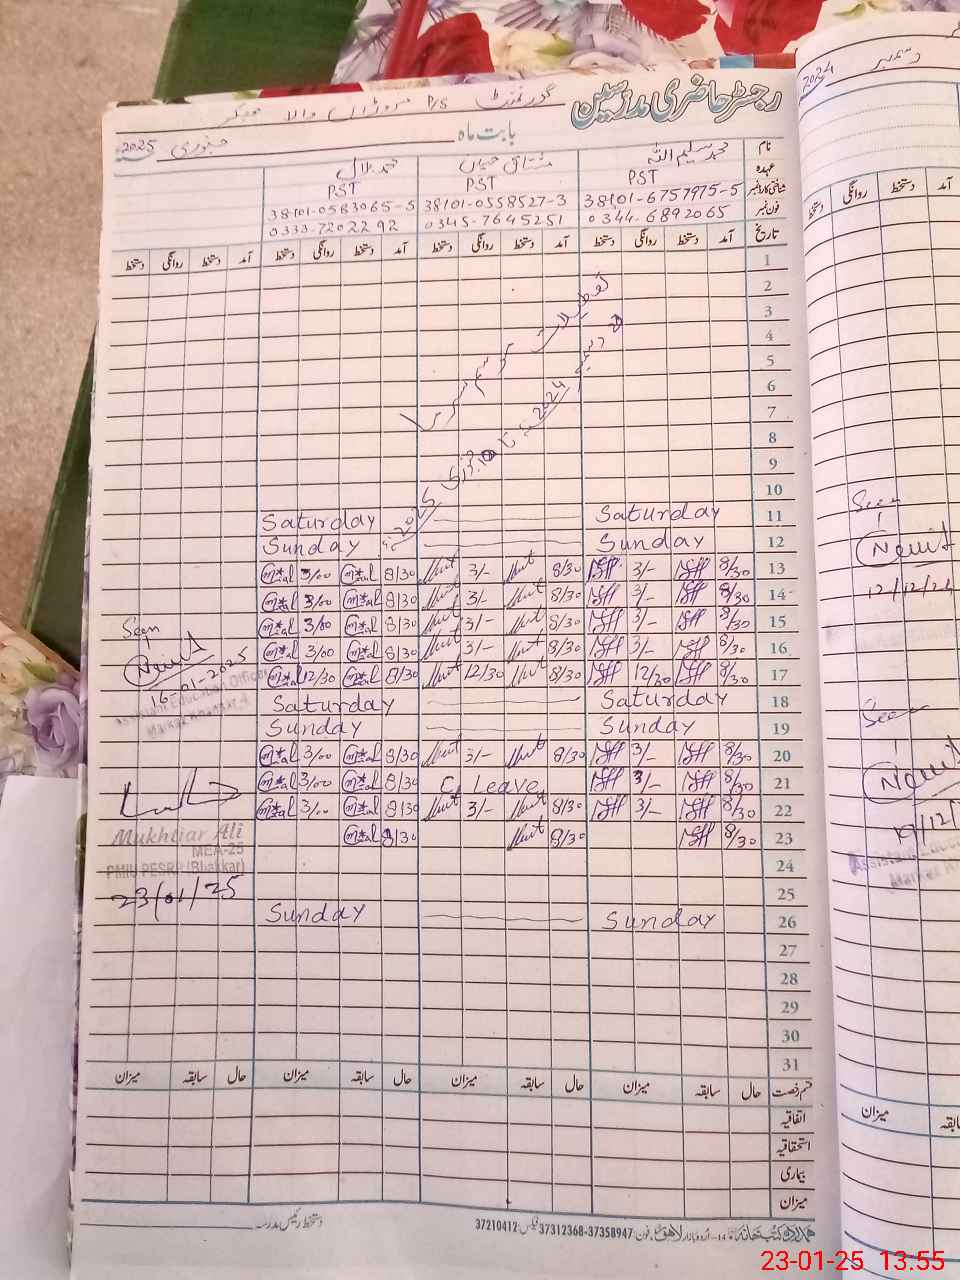 رجسٹر حاضری مدرسین
گورنمنٹ P/S والا بھکر
بابت ماہ جنوری 2025
نام محمد سلیم اللہ مشتاق حسین محمد بلال
عہدہ PST PST PST
شناختی کارڈ نمبر 38101-6757975-5 38101-0558527-3 38101-0583065-5
فون نمبر 0344-6892065 0345-7645251 0333-7202292
تاریخ آمد دستخط روانگی دستخط آمد دستخط روانگی دستخط آمد دستخط روانگی دستخط آمد دستخط روانگی دستخط
1
2
3
4
5
6
7
8
9
10
تعطیلات موسم سرما
دسمبر 2024 تا 10 جنوری 2025
11 Saturday Saturday
12 Sunday Sunday
13 8/30 3/- 8/30 3/- 8/30 3/00
14 8/30 3/- 8/30 3/- 8/30 3/00
15 8/30 3/- 8/30 3/- 8/30 3/00
16 8/30 3/- 8/30 3/- 8/30 3/00
17 8/30 12/30 8/30 12/30 8/30 12/30
18 Saturday Saturday
19 Sunday Sunday
20 8/30 3/- 8/30 3/- 8/30 3/00
21 8/30 3/- C. Leave 8/30 3/00
22 8/30 3/- 8/30 3/- 8/30 3/00
23 8/30 8/30 8/30
24
25
26 Sunday Sunday
27
28
29
30
31
Seen
16-01-2025
Assistant Education Officer
Mukhtiar Ali
MEA-25
PMIU PESRP (Bhakkar)
23/01/25
قسم رخصت حال سابقہ میزان حال سابقہ میزان حال سابقہ میزان حال سابقہ میزان
اتفاقیہ
استحقاقیہ
بیماری
میزان
دستخط رئیس مدرسہ
ہمدرد کتب خانہ اردو بازار لاہور فون: 37358947-37312368 فیکس: 37210412
دسمبر 2024
آمد دستخط روانگی دستخط
Seen
12/12/24
Seen
میزان
23-01-25 13.55